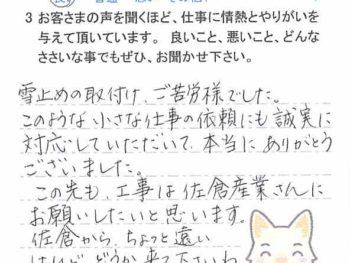 3 お客さまの声を聞くほど、仕事に情熱とやりがいを
与えて頂いています。 良いこと、悪いこと、どんな
ささいな事でもぜひ、お聞かせ下さい。
雪止めの取付け、ご苦労様でした。
このような小さな仕事の依頼にも誠実に
対応していただいて、本当にありがとう
ございました。
この先も、工事は佐倉産業さんに
お願いしたいと思います。
佐倉から、ちょっと遠い
けれど、どうか来て下さいね